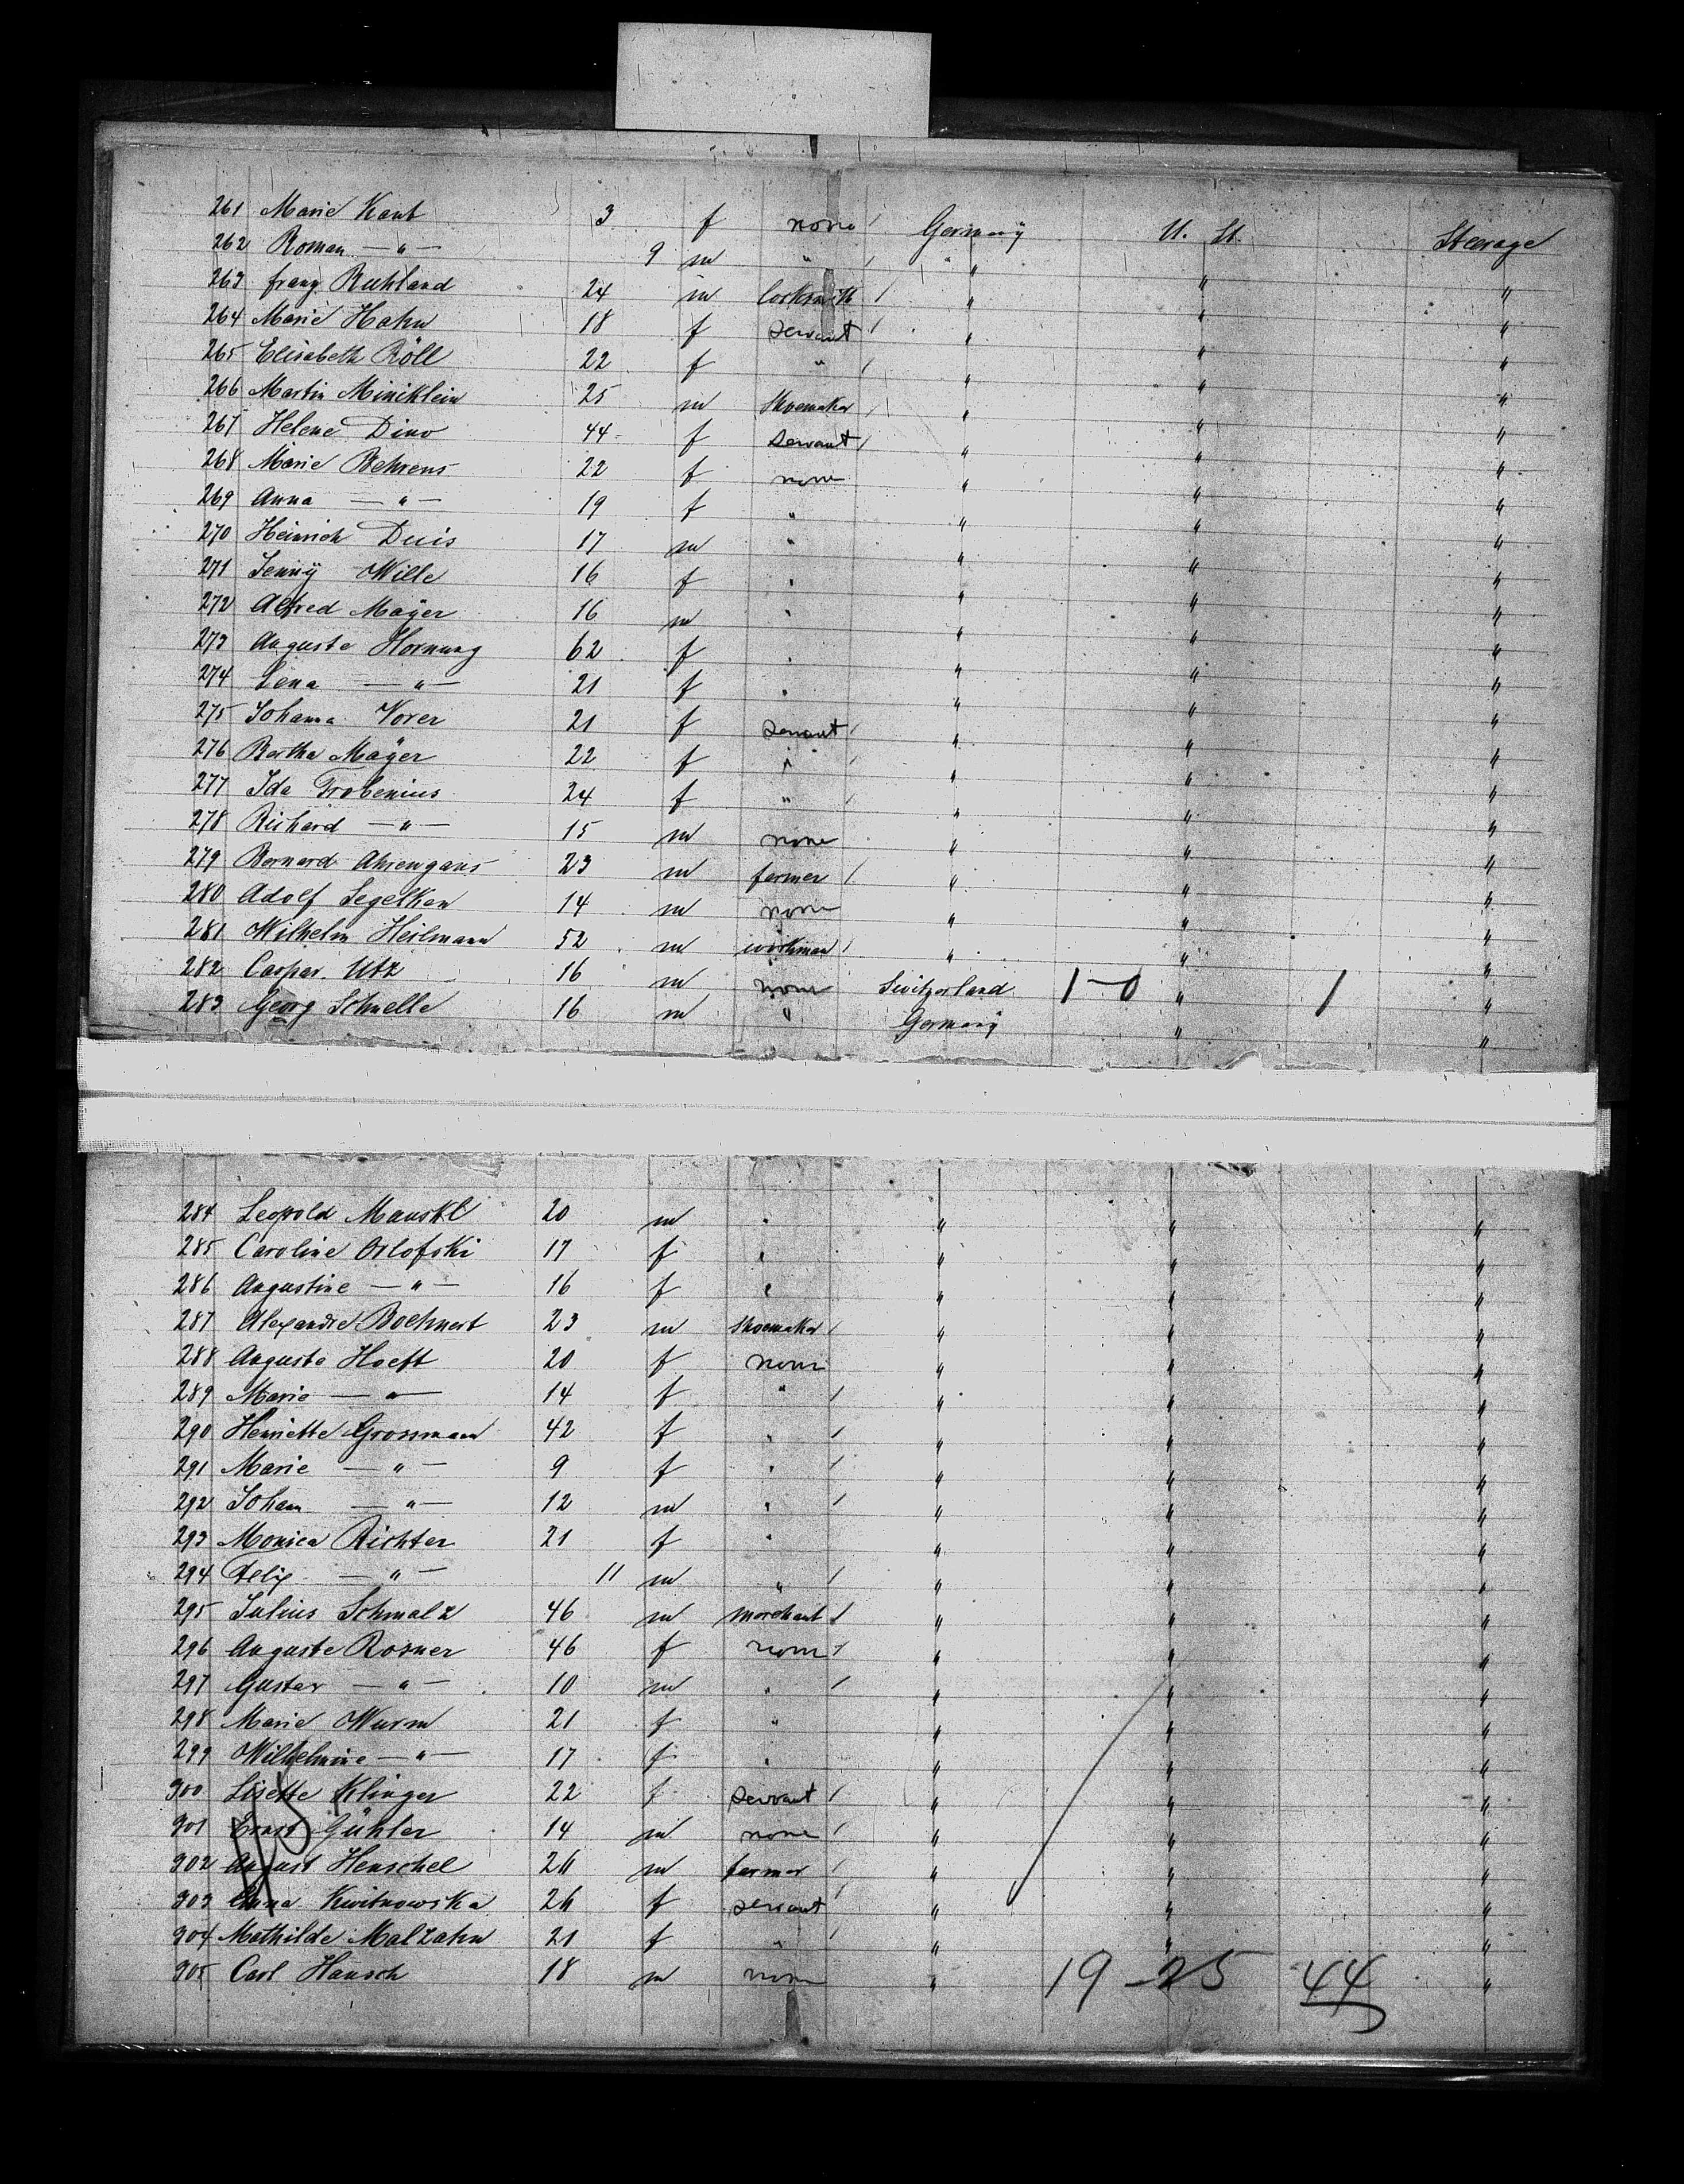 261 Marie Kant 3 f none / Germany U. St. Steerage
262 Roman — " — 9 m " / " " "
263 Franz Ruhland 24 m locksmith / " " "
264 Marie Hahn 18 f servant / " " "
265 Elisabeth Röll 22 f " / " " "
266 Martin Miniklein 25 m Shoemaker / " " "
267 Helene Dino 44 f servant / " " "
268 Marie Behrens 22 f none " " "
269 Anna — " — 19 f " " " "
270 Heinrich Duis 17 m " " " "
271 Jenny Wille 16 f " " " "
272 Alfred Mayer 16 m " " " "
273 Auguste Hornung 62 f " " " "
274 Lena — " — 21 f " " " "
275 Johanna Vorer 21 f servant / " " "
276 Bertha Mayer 22 f " / " " "
277 Ida Frobenius 24 f " / " " "
278 Richard — " — 15 m none " " "
279 Bernard Ahrengans 23 m farmer / " " "
280 Adolf Segelken 14 m none " " "
281 Wilhelm Heilmann 52 m workman / " " "
282 Caspar Utz 16 m none Switzerland 1-0 " 1 "
283 Georg Schnelle 16 m " Germany " "
284 Leopold Mauskl 20 m " " " "
285 Caroline Orlofski 17 f " " " "
286 Augustine — " — 16 f " " " "
287 Alexandre Boehnert 23 m Shoemaker / " " "
288 Auguste Hoeft 20 f none " " "
289 Marie — " — 14 f " / " " "
290 Henriette Grossmann 42 f " / " " "
291 Marie — " — 9 f " / " " "
292 Johann — " — 12 m " / " " "
293 Monica Richter 21 f " " " "
294 Felix — " — 11 m " / " " "
295 Julius Schmalz 46 m merchant / " " "
296 Auguste Rosner 46 f none / " " "
297 Gustav — " — 10 m " / " " "
298 Marie Wurm 21 f " " " "
299 Wilhelmine — " — 17 f " " " "
300 Lisette Klinger 22 f servant / " " "
301 Ernst Gühler 14 m none / " " "
302 August Henschel 26 m farmer / " " "
303 Anna Kwitnowska 26 f servant / " " "
304 Mathilde Malzahn 21 f " / " " "
305 Carl Hausch 18 m none " 19-25 44 "